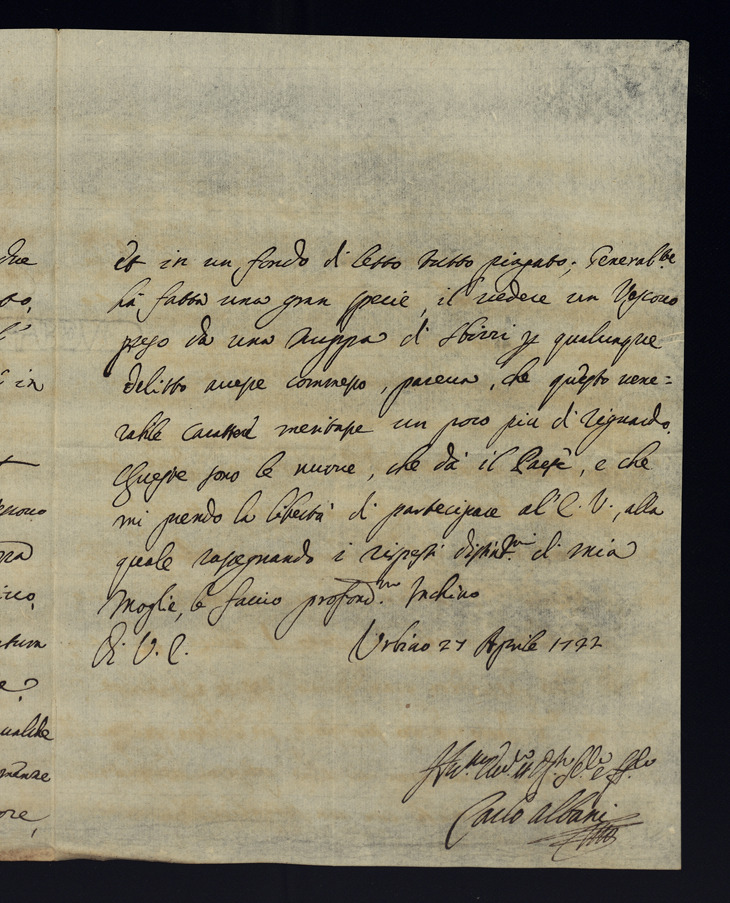 et in un fondo di letto tutto piagato; General.te
hà fatto una gran specie, il vedere un Vescovo
preso da una truppa di sbirri p qualunque
delitto avesse commesso, pareva, che questo vene=
rabile carattere meritasse un poco più di riguardo.
Queste sono le nuove, che dà il Paese, e che
mi prendo la libertà di partecipare all'E. V., alla
quale rassegnando i rispetti distint.mi di mia
Moglie, le faccio profond.mo Inchino
Di V. E. Urbino 27 Aprile 1722
Carlo Albani
due
in
ore,